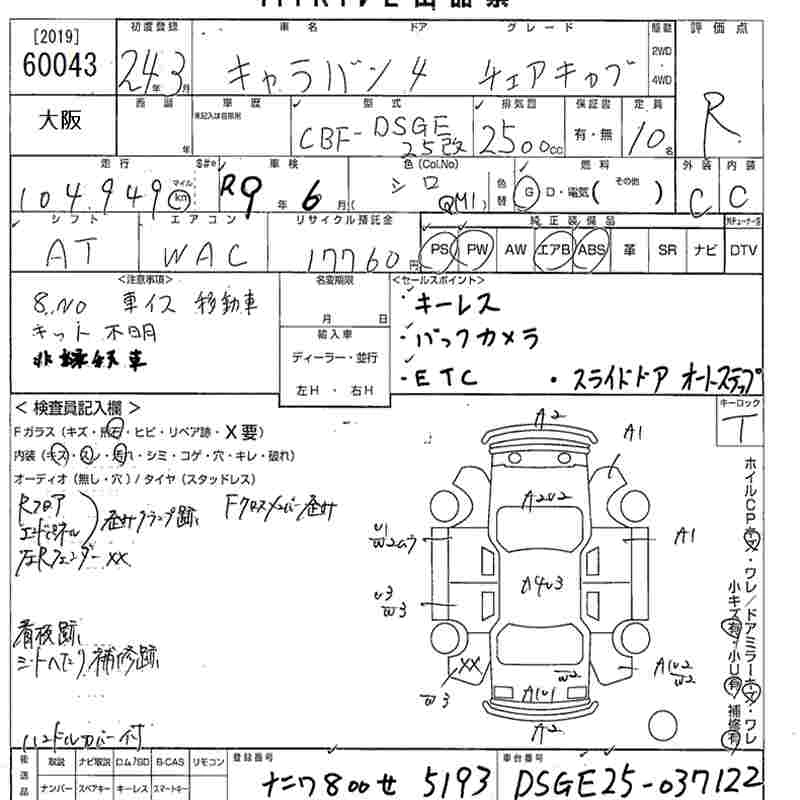 [2019]
60043
大阪
初度登録
24年3月
車名 ドア グレード
キャラバン 4 チェアキャブ
駆動
2WD
4WD
評価点
R
車歴
未記入は自家用
年
型式
CBF-DSGE25改
排気量
2500cc
保証書
有・無
定員
10名
走行
104,949
マイル
km
車検
R9年6月(
色(Col.No)
シロ QM1)
色替
燃料
G D・電気( その他 )
外装 内装
C C
シフト
AT
エアコン
WAC
リサイクル預託金
17760円
純正装備品
PS PW AW エアB ABS 革 SR ナビ DTV
<注意事項>
8.NO 車イス移動車
キット不明
名変期限
月 日
輸入車
ディーラー・並行
左H・右H
<セールスポイント>
・キーレス
・バックカメラ
・ETC ・スライドドア オートステップ
キーロック
T
<検査員記入欄>
Fガラス(キズ・飛石・ヒビ・リペア跡・X要)
内装(キズ・スレ・汚れ・シミ・コゲ・穴・キレ・破れ)
オーディオ(無し・穴)/タイヤ(スタッドレス)
Rフロア
エンドパネル
歪みクランプ跡 Fクロスメンバー歪み
左Rフェンダー XX
シートへたり 補修跡
ハンドルカバー付
A2
A1
A2U2
U1
A1
A4U3
U3
W3
XX
W3
W2
A1U1
A1U2
W2
A2
ホイルCPキズ・ワレ/ドアミラーキズ・ワレ
小キズ有・小U有 補修有
後送品
取説 ナビ取説 B-CAS リモコン
ナンバー スペアキー キーレス スマートキー
登録番号
ナニワ800せ 5193
車台番号
DSGE25-037122